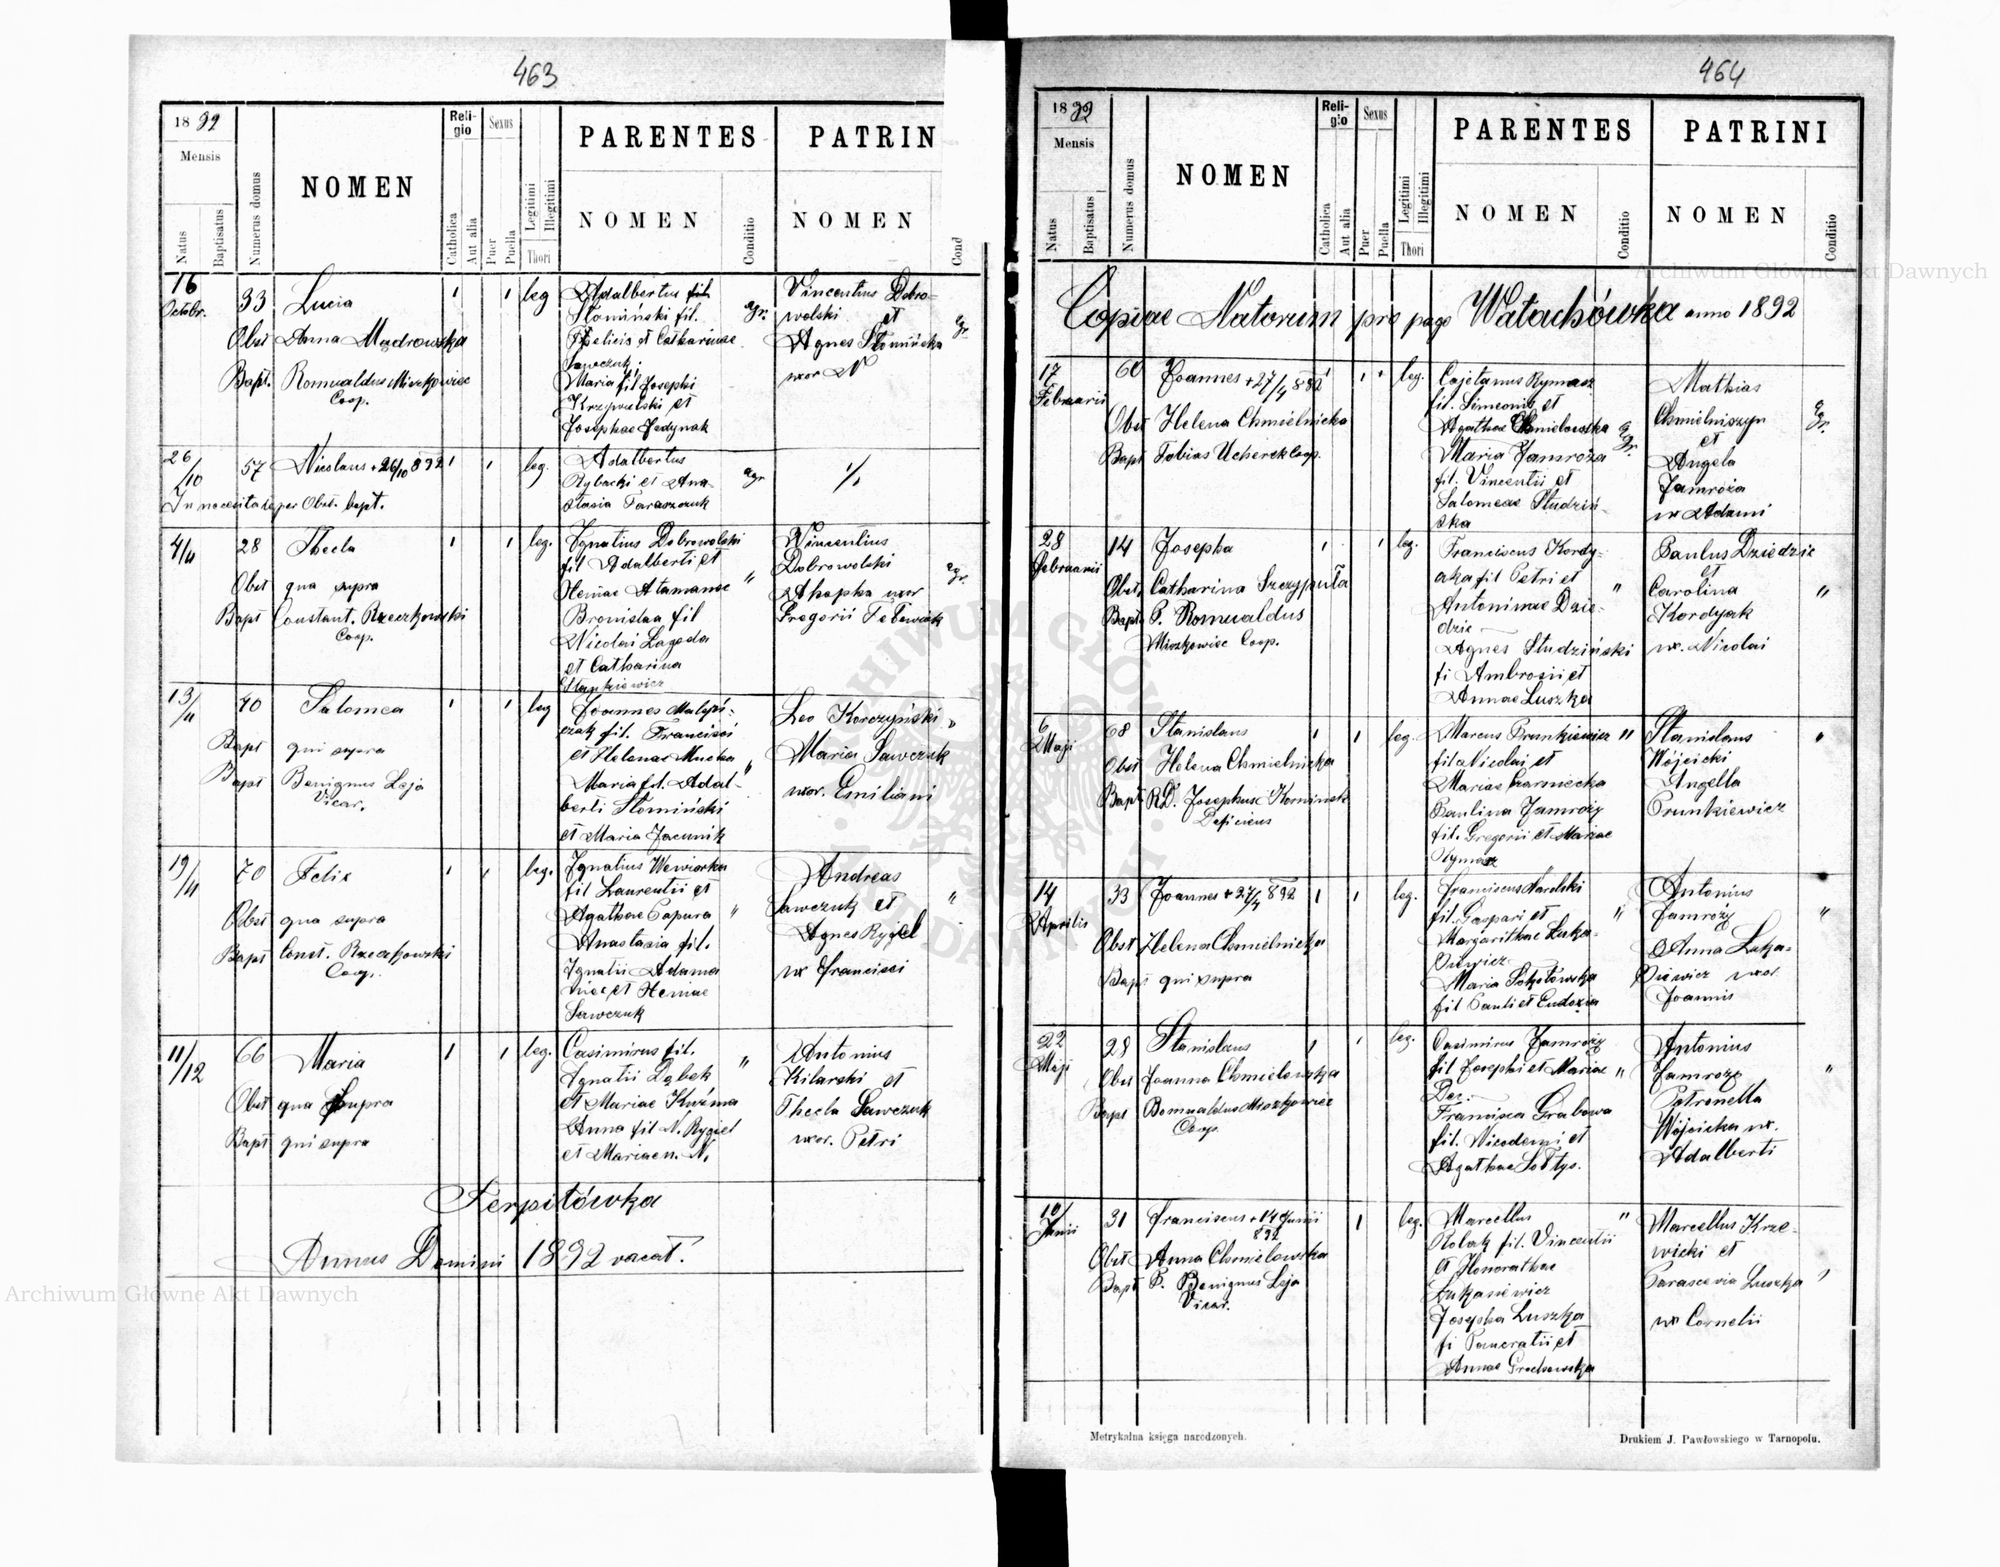 463
18 92
Mensis
Natus
Baptisatus
Numerus domus
NOMEN
Reli-
gio
Catholica
Aut alia
Sexus
Puer
Puella
Legitimi
Illegitimi
Thori
PARENTES
NOMEN
Conditio
PATRIN
NOMEN
Cond
16
Octobr.
33
Lucia
leg
Adalbertus fil.
Słomiński fil.
Felicis et Catharinae
Sawczuk;
Maria fil Josephi
Krzywulski et
Josephae Jedynak
agr.
Vincentius Dobro-
wolski et
Agnes Słomińska
uxor N
agr.
Obst Anna Mądrowska
Bapt. Romualdus Miszkowiec
Coop.
26/10
57
Nicolaus + 26/10 892
leg.
Adalbertus
Rybacki et Ana-
stasia Taraszczuk
agr
In necessitate per Obst. bapt.
4/11
28
Thecla
leg.
Ignatius Dobrowolski
fil Adalberti et
Heniae Atamanec
Bronislaa fil
Nicolai Łagoda
et Catharina
Stankiewicz
"
Vincentius
Dobrowolski
Ahapha uxor
Gregorii
agr.
Obst qua supra
Bapt Constant. Rzeczkowski
Coop.
13/11
40
Salomea
leg
Joannes
fil. Francisci
et Helenae Mucha
Maria fil. Adal-
berti Słomiński
et Maria Jacunik
"
Leo Korczyński
Maria Sawczuk
uxor. Emiliani
"
Bapt qui supra
Bapt Benignus Leja
Vicar.
19/11
70
Felix
leg.
Ignatius Wewiorka
fil Laurentii et
Agathae Capura
Anastasia fil.
Ignatii Adama
et Heniae
Sawczuk
"
Andreas
Sawczuk et
Agnes Rygiel
ux Francisci
"
Obst qua supra
Bapt Const. Rzeczkowski
Coop.
11/12
66
Maria
leg.
Casimirus fil.
Ignatii Dąbek
et Mariae Kuźma
Anna fil N. Rygiel
et Mariae n. N.
"
Antonius
Kilarski et
Thecla Sawczuk
uxor. Petri
Obst qua supra
Bapt qui supra
Serpitówka
Annus Domini 1892 vacat.
464
18 92
Mensis
Natus
Baptisatus
Numerus domus
NOMEN
Reli-
gio
Catholica
Aut alia
Sexus
Puer
Puella
Legitimi
Illegitimi
Thori
PARENTES
NOMEN
Conditio
PATRINI
NOMEN
Conditio
Copiae Natorum pro pago Watachówka anno 1892
17
Februarii
60
Joannes + 27/4 892
leg.
Cajetanus Rymasz
fil. Simeonis et
Agathae Chmielowska
Maria Jamroża
fil. Vincentii et
Salomeae Studziń-
ska
agr.
Mathias
Chmielniszyn
et
Angela
Jamroża
ux Adami
agr.
Obst Helena Chmielnicka
Bapt Tobias Ucherek Coop.
28
Februarii
14
Josepha
leg.
Franciscus Kordy-
aka fil Petri et
Antoninae Dzie-
dzic
Agnes Studziński
fi Ambrosii et
Annae Luszka
"
Paulus Dziedzic
et
Carolina
Kordyak
ux. Nicolai
"
Obst. Catharina Szczypuła
Bapt P. Romualdus
Miszkowiec Coop.
6
Maji
68
Stanislaus
leg.
Marcus Prunkiewicz
fil Nicolai et
Mariae Czarniecka
Paulina Jamroży
fil. Gregorii et Mariae
Rymasz
"
Stanislaus
Wójcicki
Angella
Prunkiewicz
"
Obst Helena Chmielnicka
Bapt RD. Josephus Kominek
Deficiens
14
Aprilis
33
Joannes + 27/4 892
leg.
Franciscus Narolski
fil. Gaspari et
Margarithae Łuka-
siewicz
Maria Sokołówska
fil Pauli et Eudoxia
"
Antonius
Jamroży
Anna Łuka-
siewicz uxor
Joannis
"
Obst Helena Chmielnicka
Bapt qui supra
22
Maji
28
Stanislaus
leg.
Casimirus Jamroży
fil Josephi et Mariae
Francisca Grabowa
fil. Nicodemi et
Agathae Sołtys.
"
Antonius
Jamroży
Petronella
Wójcicka ux.
Adalberti
"
Obst Joanna Chmielewska
Bapt Romualdus Miszkowiec
Coop.
10/
Junii
31
Franciscus + 14 Junii
892
leg.
Marcellus
Rolak fil. Vincentii
et Honorathae
Łukasiewicz
Josepha Luszka
fi Pancratii et
Annae Grochowska
"
Marcellus Krze-
wicki et
Parascevia Luszka
ux Cornelii
"
Obst Anna Chmielowska
Bapt P. Benignus Leja
Vicar.
Metrykalna księga narodzonych.
Drukiem J. Pawłowskiego w Tarnopolu.
Archiwum Główne Akt Dawnych
Archiwum Główne Akt Dawnych
ARCHIWUM GŁÓWNE AKT DAWNYCH